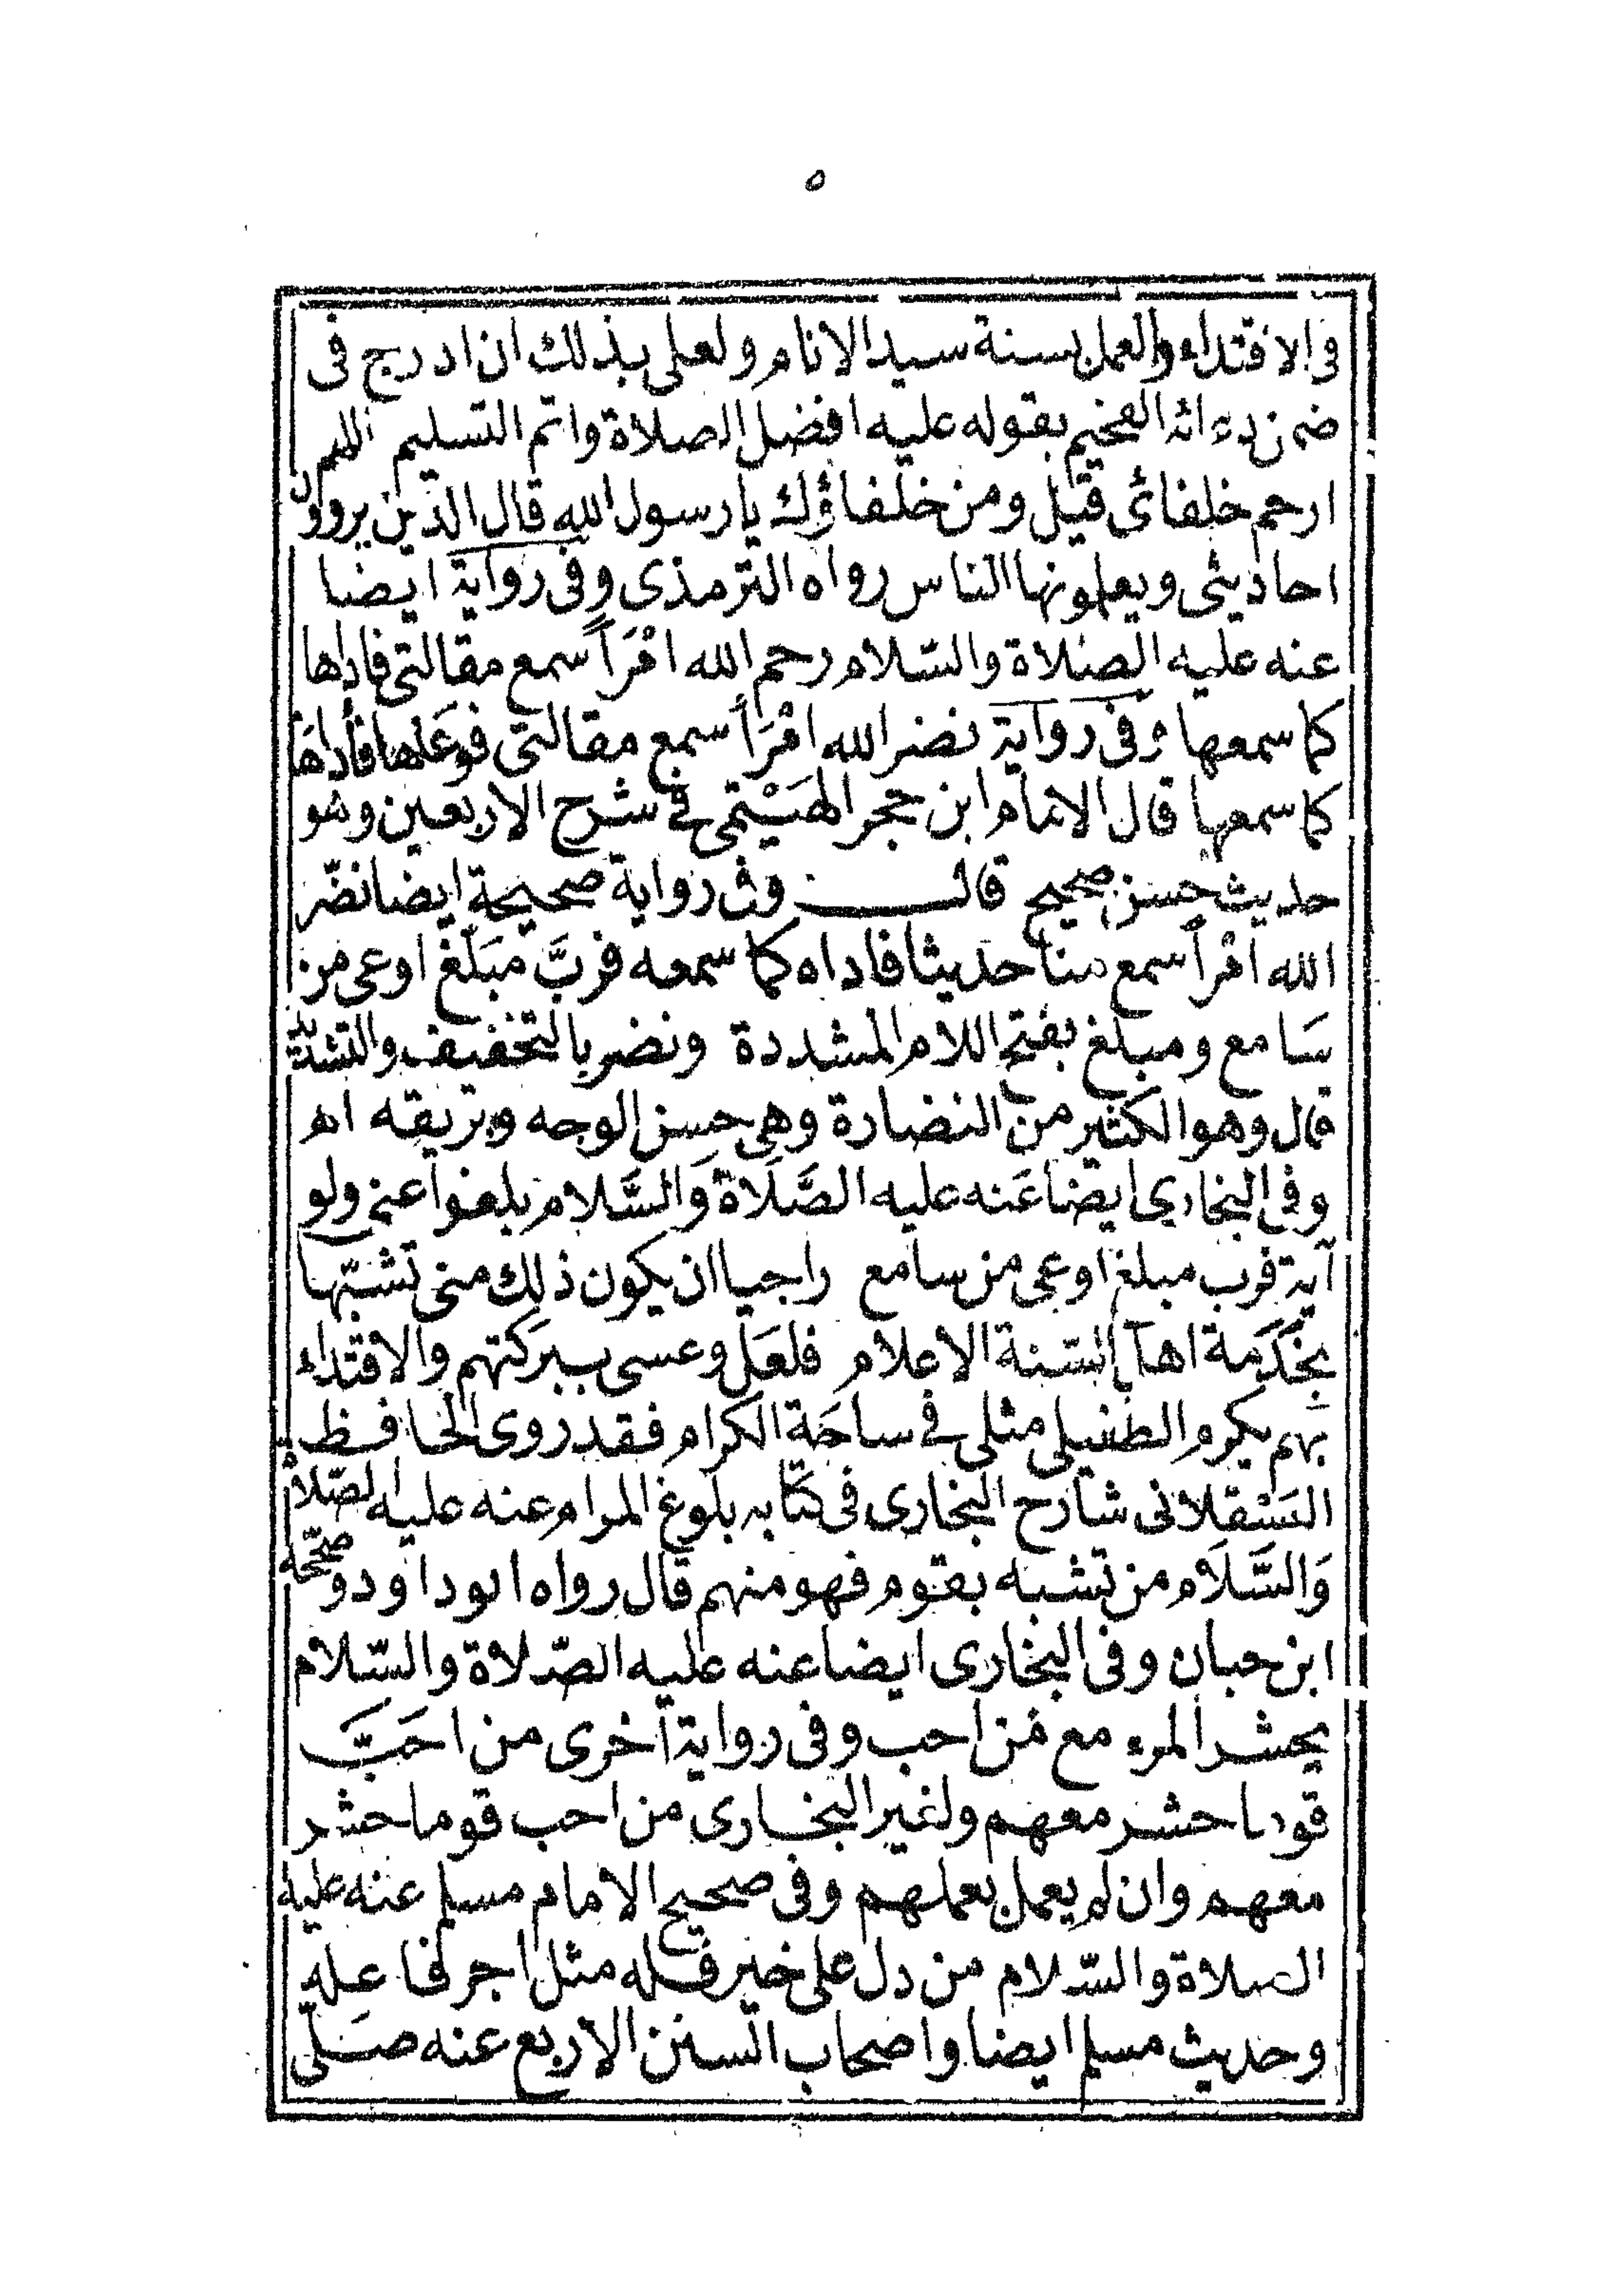 ٥
فى الاقتداء والعمل بسنة سيد الانام ولعلى بذلك ان ادرج فى
ضمن دعائه الفخيم بقوله عليه افضل الصلاة واتم التسليم اللهم
ارحم خلفائى قيل ومن خلفاؤك يا رسول الله قال الذين يروون
احاديثى ويعلمونها الناس رواه الترمذى وفى رواية ايضا
عنه عليه الصلاة والسّلام رحم الله امْرَأً سمع مقالتى فاداها
كما سمعها وفى رواية نضر الله امْرَأً سمع مقالتى فوعَاها فأداهَا
كما سمعها قال الامام ابن حجر الهَيْتمى فى شرح الاربعين وهو
حديث حسن صحيح قال وفى رواية صحيحة ايضا نضّر
الله امْرأً سمع منا حديثا فاداه كما سمعه فربَّ مبَلَّغ اوعى من
سَامع ومبلغ بفتح اللام المشددة ونضر بالتخفيف والتشديد
قال وهو الكثير من النضارة وهى حسن الوجه وبريقه اه
وفى البخارى ايضا عَنه عليه الصَّلَاة وَالسَّلام بلغوا عنى ولو
آية فرب مبلغ اوعى من سامع راجيا ان يكون ذلك منى تشبّها
بخدَمة اهل السّنة الاعلام فلعَل وعسى ببركتهم والاقتداء
بهم يكرم الطفيلى مثلى فى ساحَة الكرام فقد روى الحافظ
العَسْقلانى شارح البخارى فى كتابه بلوغ المرام عنه عليه الصّلاة
وَالسَّلَام من تشبه بقوم فهو منهم قال رواه ابو داود وصحّحه
ابن حبان وفى البخارى ايضا عنه عليه الصّلاة والسّلام
يحشر المرء مع مَن احب وفى رواية أخرى من احَبَّ
قوما حشر معهم ولغير البخارى من احب قوما حشر
معهم وان لم يعمل بعملهم وفى صحيح الامام مسلم عنه عليه
الصلاة والسّلام من دل على خير فله مثل اجر فاعله
وحديث مسلم ايضا واصحاب السنن الاربع عنه صَلّى